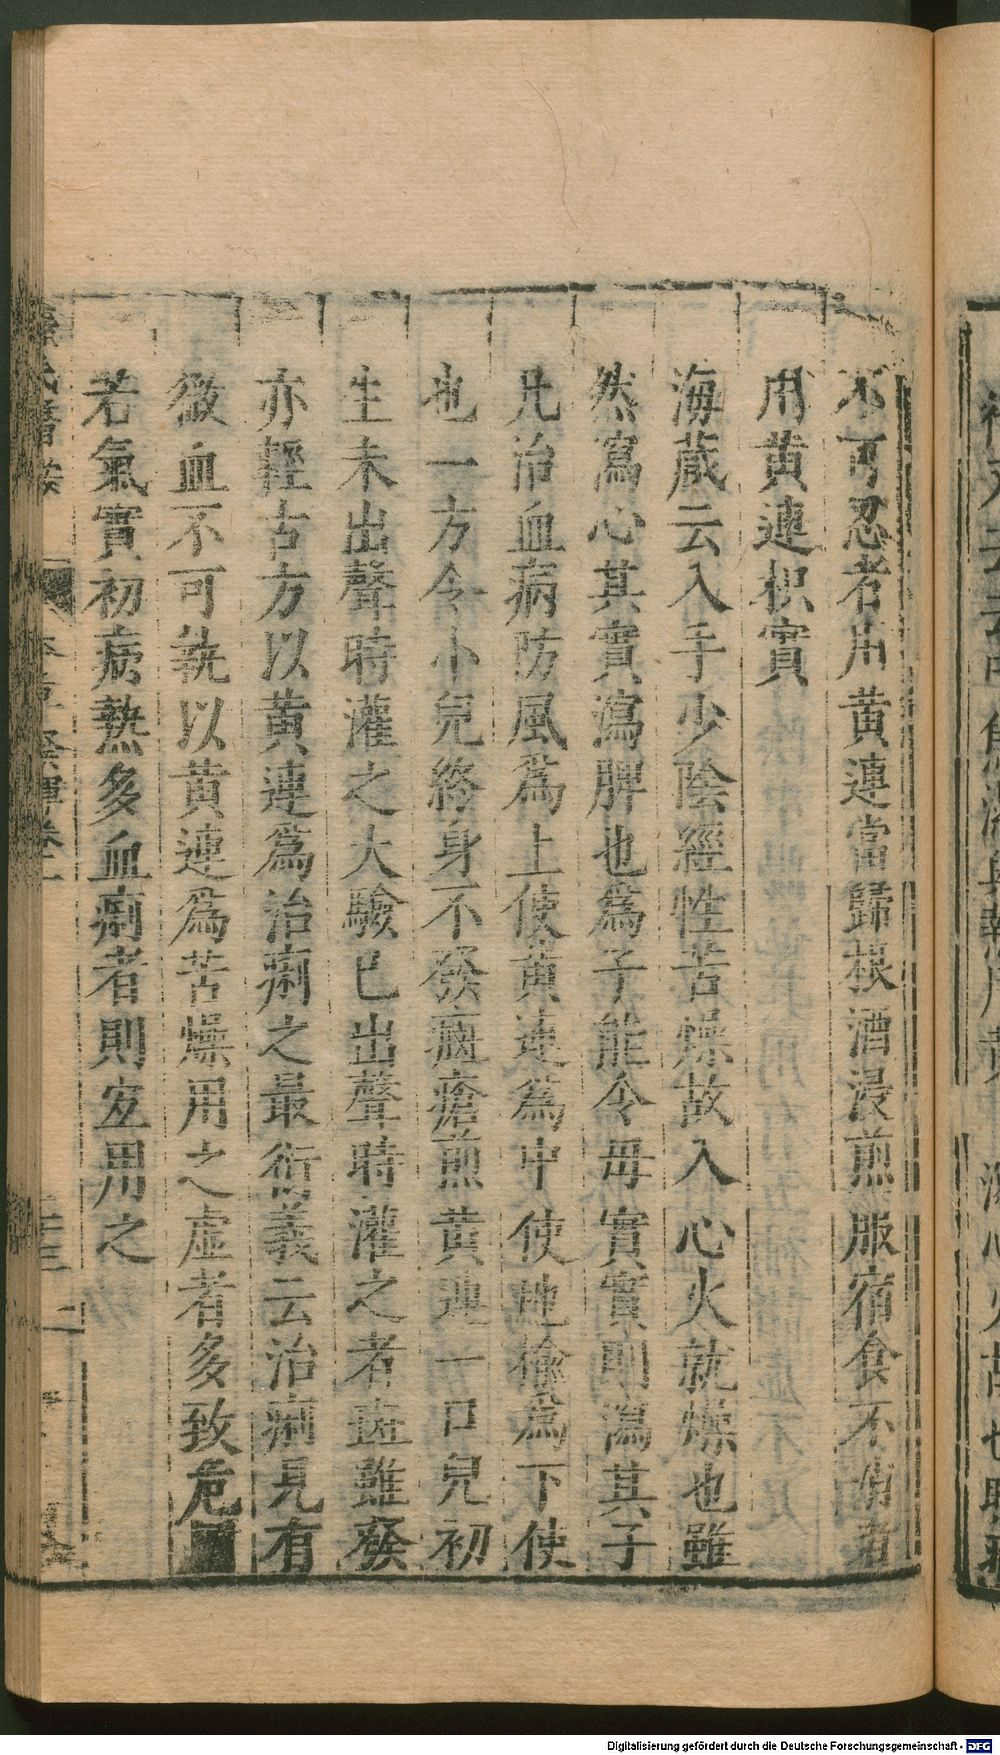 不可忍者用黄連當歸根酒浸煎服宿食不消者
用黄連枳實
海蔵云入手少陰經性苦燥故入心火就燥也雖
然瀉心其實瀉脾也為子能令母實實則瀉其子
凡治血病防風為上使黄連為中使地榆為下使
也一方令小兒終身不發癍瘡煎黄連一口兒初
生未出聲時灌之大驗已出聲時灌之者 雖發
亦輕古方以黄連為治痢之最衍義云治痢見有
微血不可執以黄連為苦燥用之虛者多致危
若氣實初病熱多血痢者則宜用之
Digitalisierung gefördert durch die Deutsche Forschungsgemeinschaft - DFG